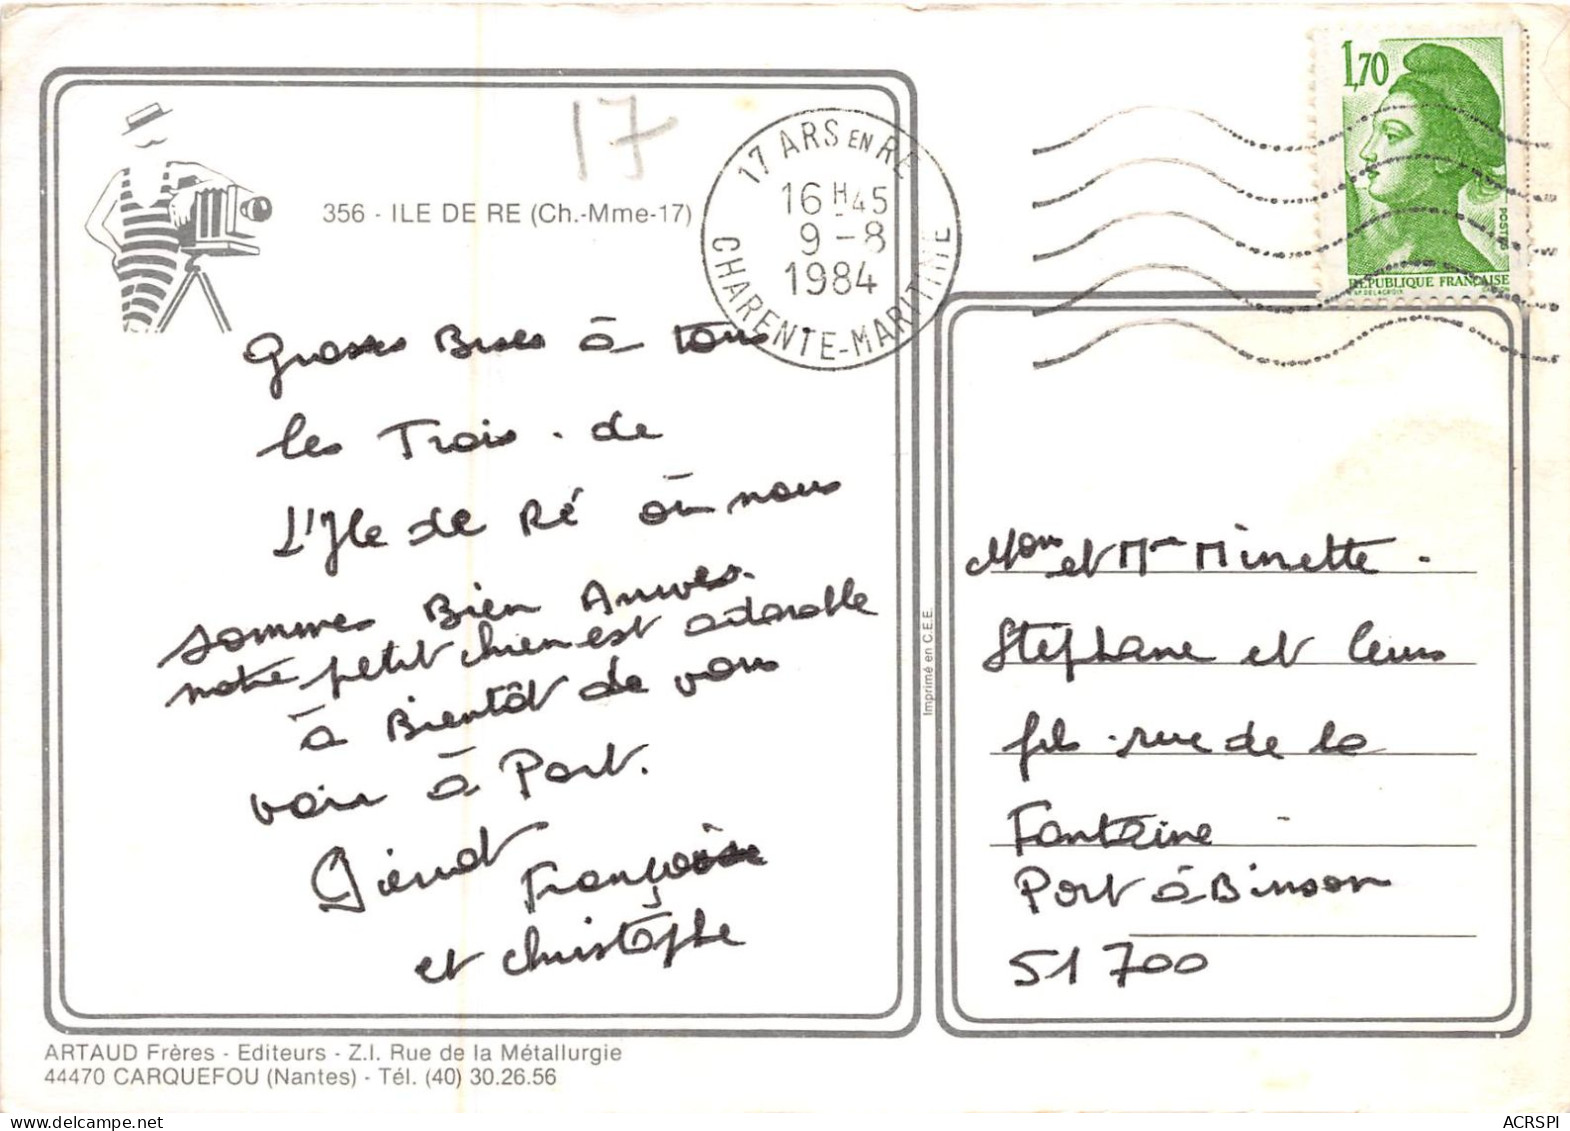 17
356 - ILE DE RE (Ch.-Mme-17)
17 ARS EN RE
16 H 45
9 - 8
1984
CHARENTE-MARITIME
1,70
POSTES
REPUBLIQUE FRANÇAISE
Grosses Bises à tous
les Trois. de
L'Ile de Ré où nous
sommes Bien Arrivés.
notre petit chien est adorable
à Bientôt de vous
voir à Port.
Françoise
et christophe
Imprimé en C.E.E.
Mon et Mme Minette.
Stéphane et leurs
fils. rue de la
Fontaine
Port à Binson
51 700
ARTAUD Frères - Editeurs - Z.I. Rue de la Métallurgie
44470 CARQUEFOU (Nantes) - Tél. (40) 30.26.56
ACRSPI